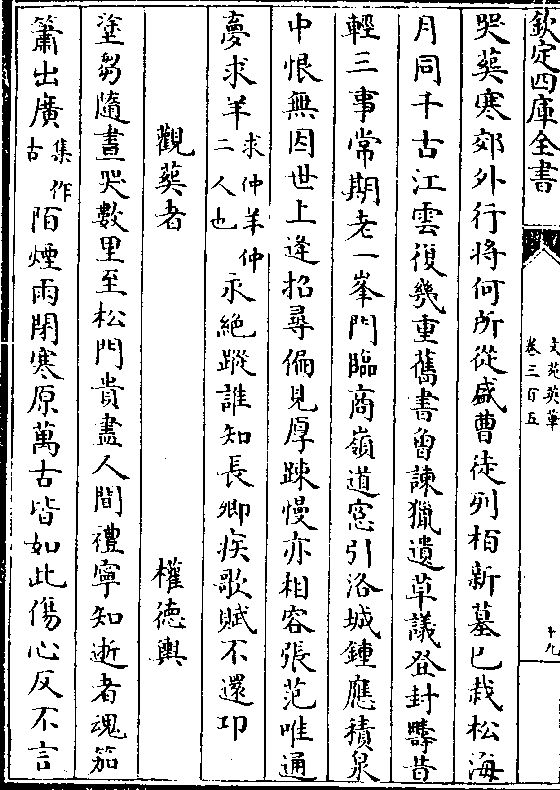 欽定四庫全書
文苑英華
卷三百五
十九
哭葬寒郊外行將何所從盛曹徒列栢新墓已栽松海
月同千古江雲復幾重舊書曽諫獵遺草議登封疇昔
輕三事常期老一峯門臨商嶺道窓引洛城鍾應積泉
中恨無因世上逢招尋偏見厚踈慢亦相容張范唯通
夢求羊求仲羊仲二人也永絶蹤誰知長卿疾歌賦不還卭
觀葬者 權德輿
塗芻隨晝哭數里至松門貴盡人間禮寧知逝者魂笳
簫出廣集作古陌煙雨閉寒原萬古皆如此傷心反不言